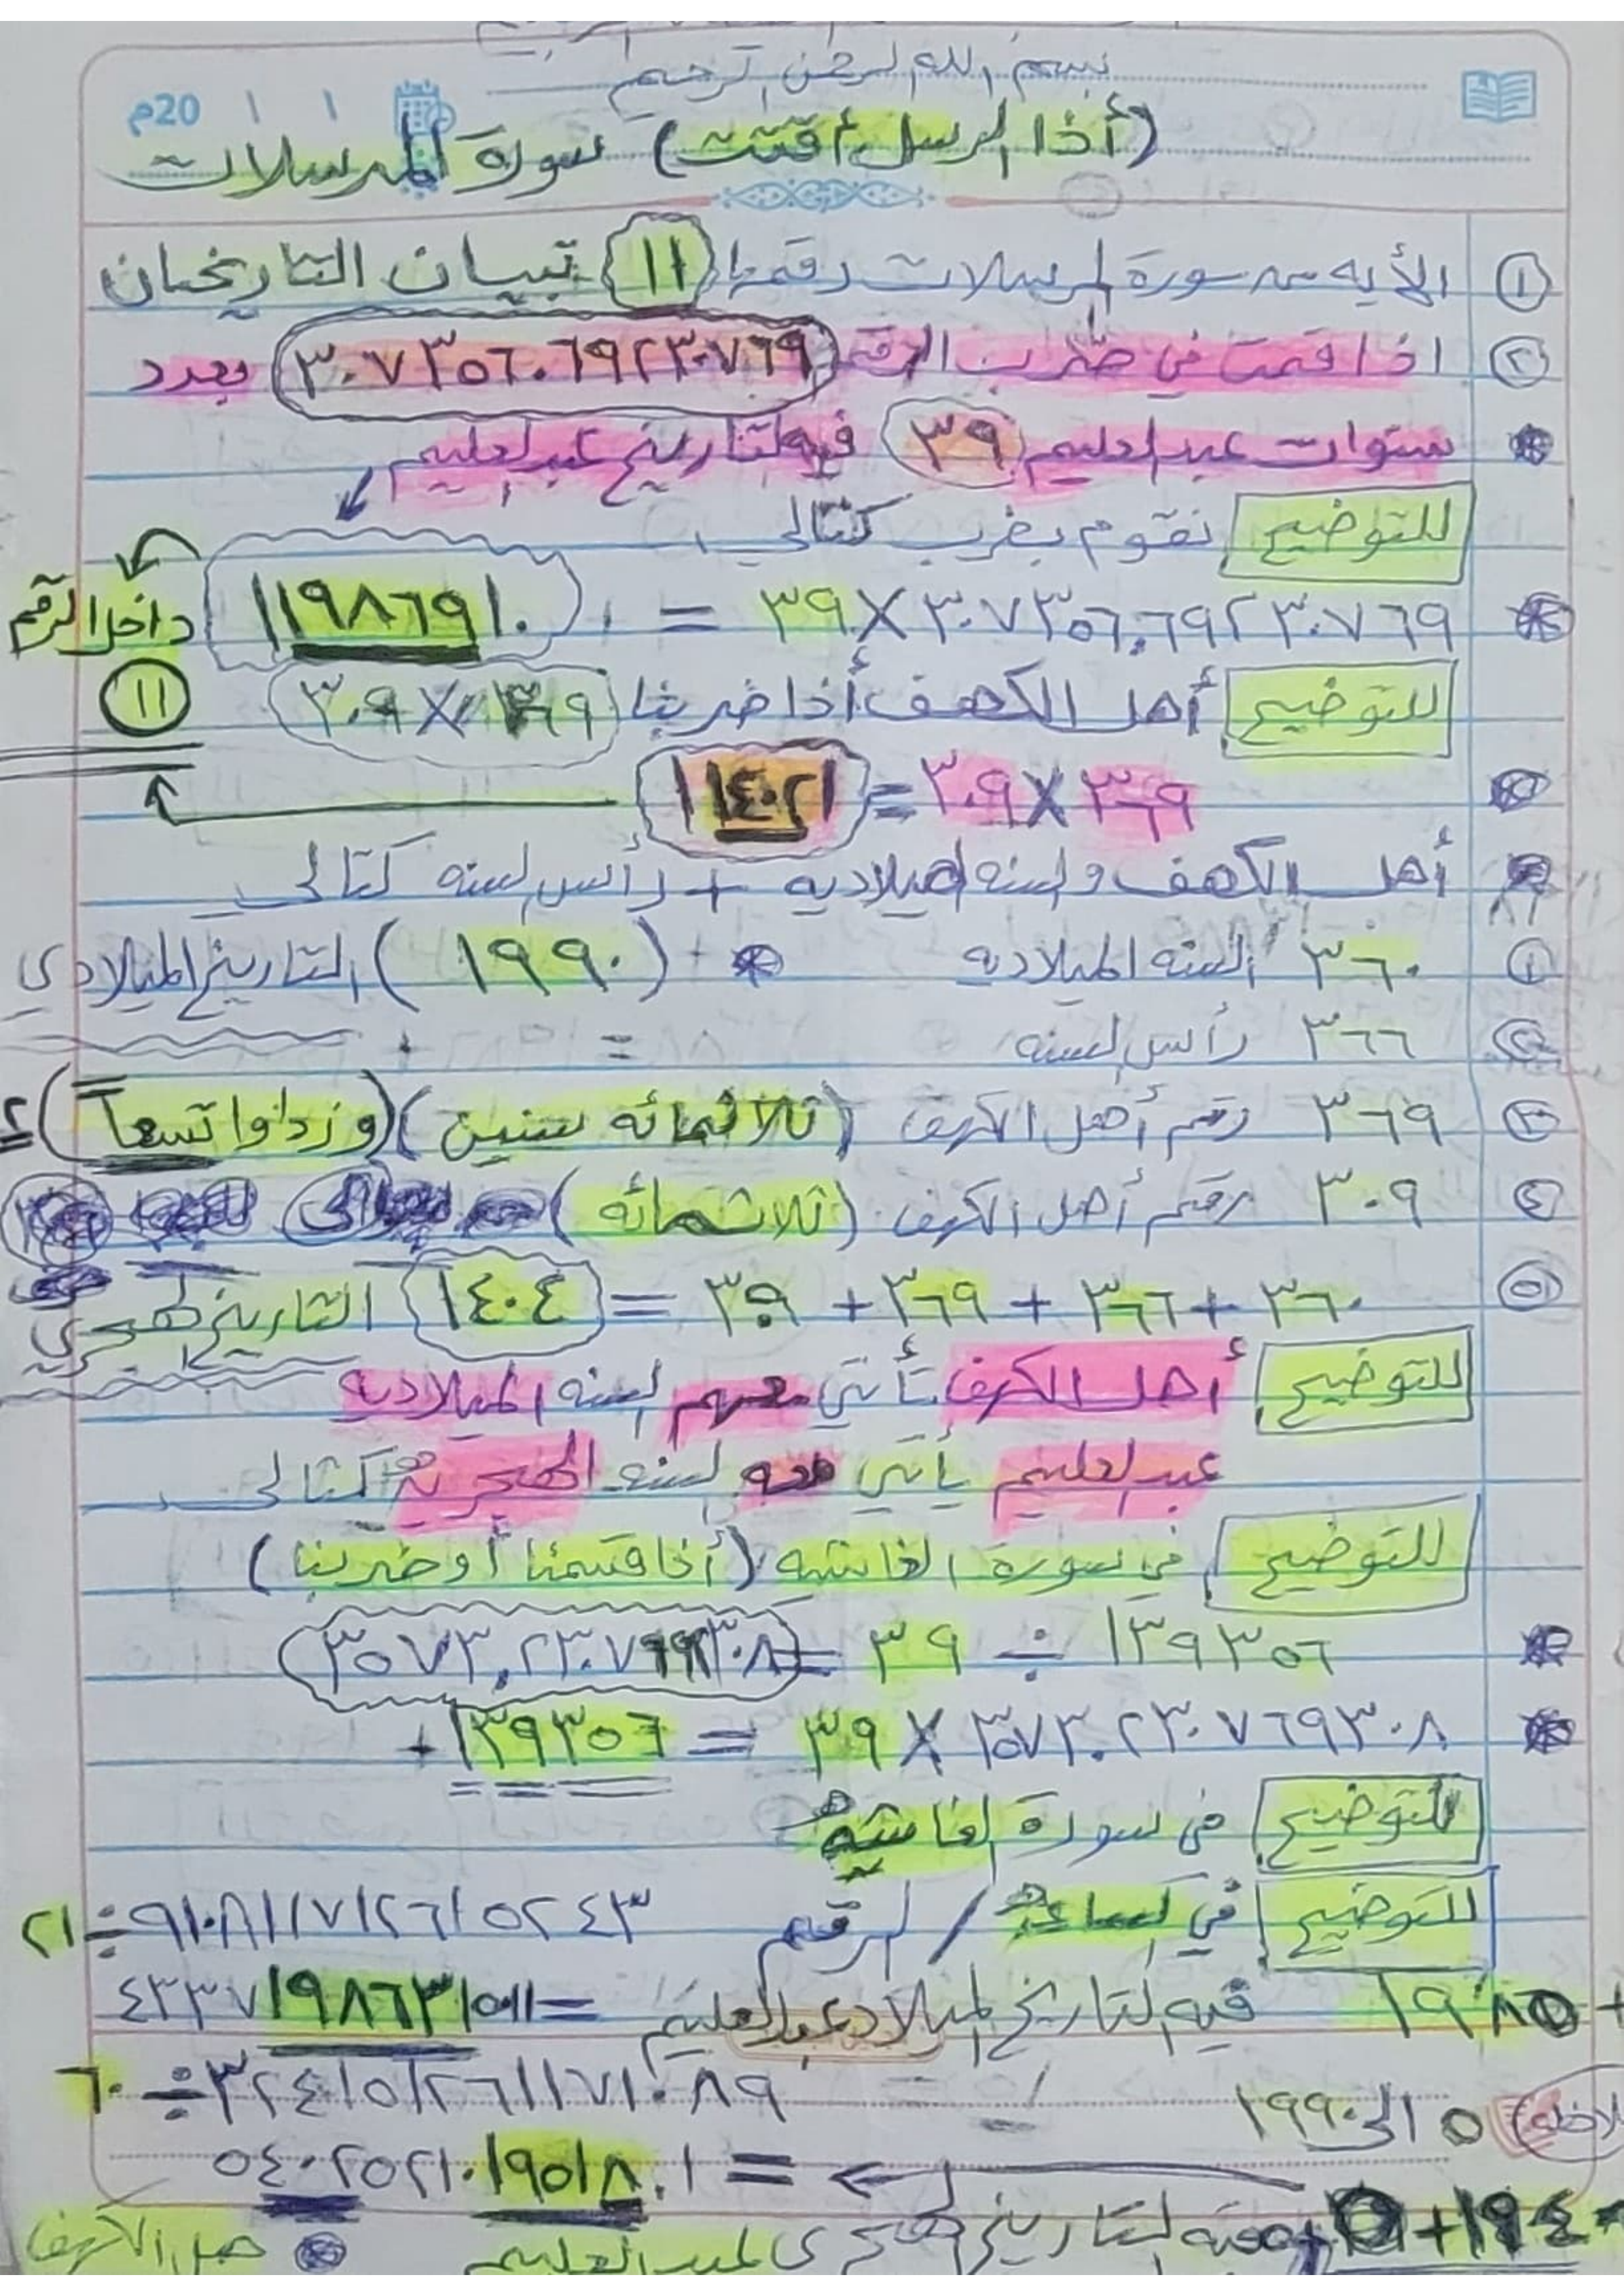 بسم الله الرحمن الرحيم
20م
(أذا الرسل أقتت) سورة المرسلات
① الأيه من سورة المرسلات رقمها (١١) تبيان التاريخان
② اذا قمت في ضرب الرقم (٣٠٧٣٥٦٠٦٩٢٣٠٧٦٩) بعدد
سنوات عبدالعليم (٣٩) فيه التاريخ عبدالعليم
للتوضيح نقوم بضرب كتالي
٣٠٧٣٥٦,٦٩٢٣٠٧٦٩ × ٣٩ = ١١٩٨٦٩١٠ داخل الرقم
للتوضيح أهل الكهف أذا ضربنا ٣٦٩ × ٣٠٩ (١١)
٣٦٩ × ٣٠٩ = ١١٤٠٢١
أهل الكهف والسنه الميلاديه + رأس السنه كتالي
① ٣٦٠ السنه الميلاديه (١٩٩٠) التاريخ الميلادي
② ٣٦٦ رأس السنه
③ ٣٦٩ رقم أهل الكهف (ثلاثمائه سنين) (وزدادوا تسعاً)
④ ٣٠٩ رقم أهل الكهف (ثلاثمائه)
⑤ ٣٦٠ + ٣٦٦ + ٣٦٩ + ٣٠٩ = ١٤٠٤ التاريخ الهجري
للتوضيح أهل الكهف تأتي معهم السنه الميلاديه
عبدالعليم يأتي معه السنه الهجريه كتالي
للتوضيح في سورة الغاشيه (أذا قسمنا أو ضربنا)
١٣٩٣٥٦ ÷ ٣٩ = (٣٥٧٣,٢٣٠٧٦٩٢٣٠٨)
٣٥٧٣,٢٣٠٧٦٩٣٠٨ × ٣٩ = ١٣٩٣٥٦
للتوضيح في سورة الغاشيه
للتوضيح في الساعة / الرقم ٩١٠٨١١٧١٢٦١٥٢٤٣ ÷ ٢١
فيه التاريخ الميلادي عبدالعليم = ٤٣٣٧١٩٨٦٣١٥٠١١
٣٢٤١٥١٢٦١١٧١٠٨٩ ÷ ٦٠
الى ١٩٩٠
= ٥٤٠٢٥٢١٠١٩٥١٨٠١
فيه التاريخ الهجري لعبدالعليم